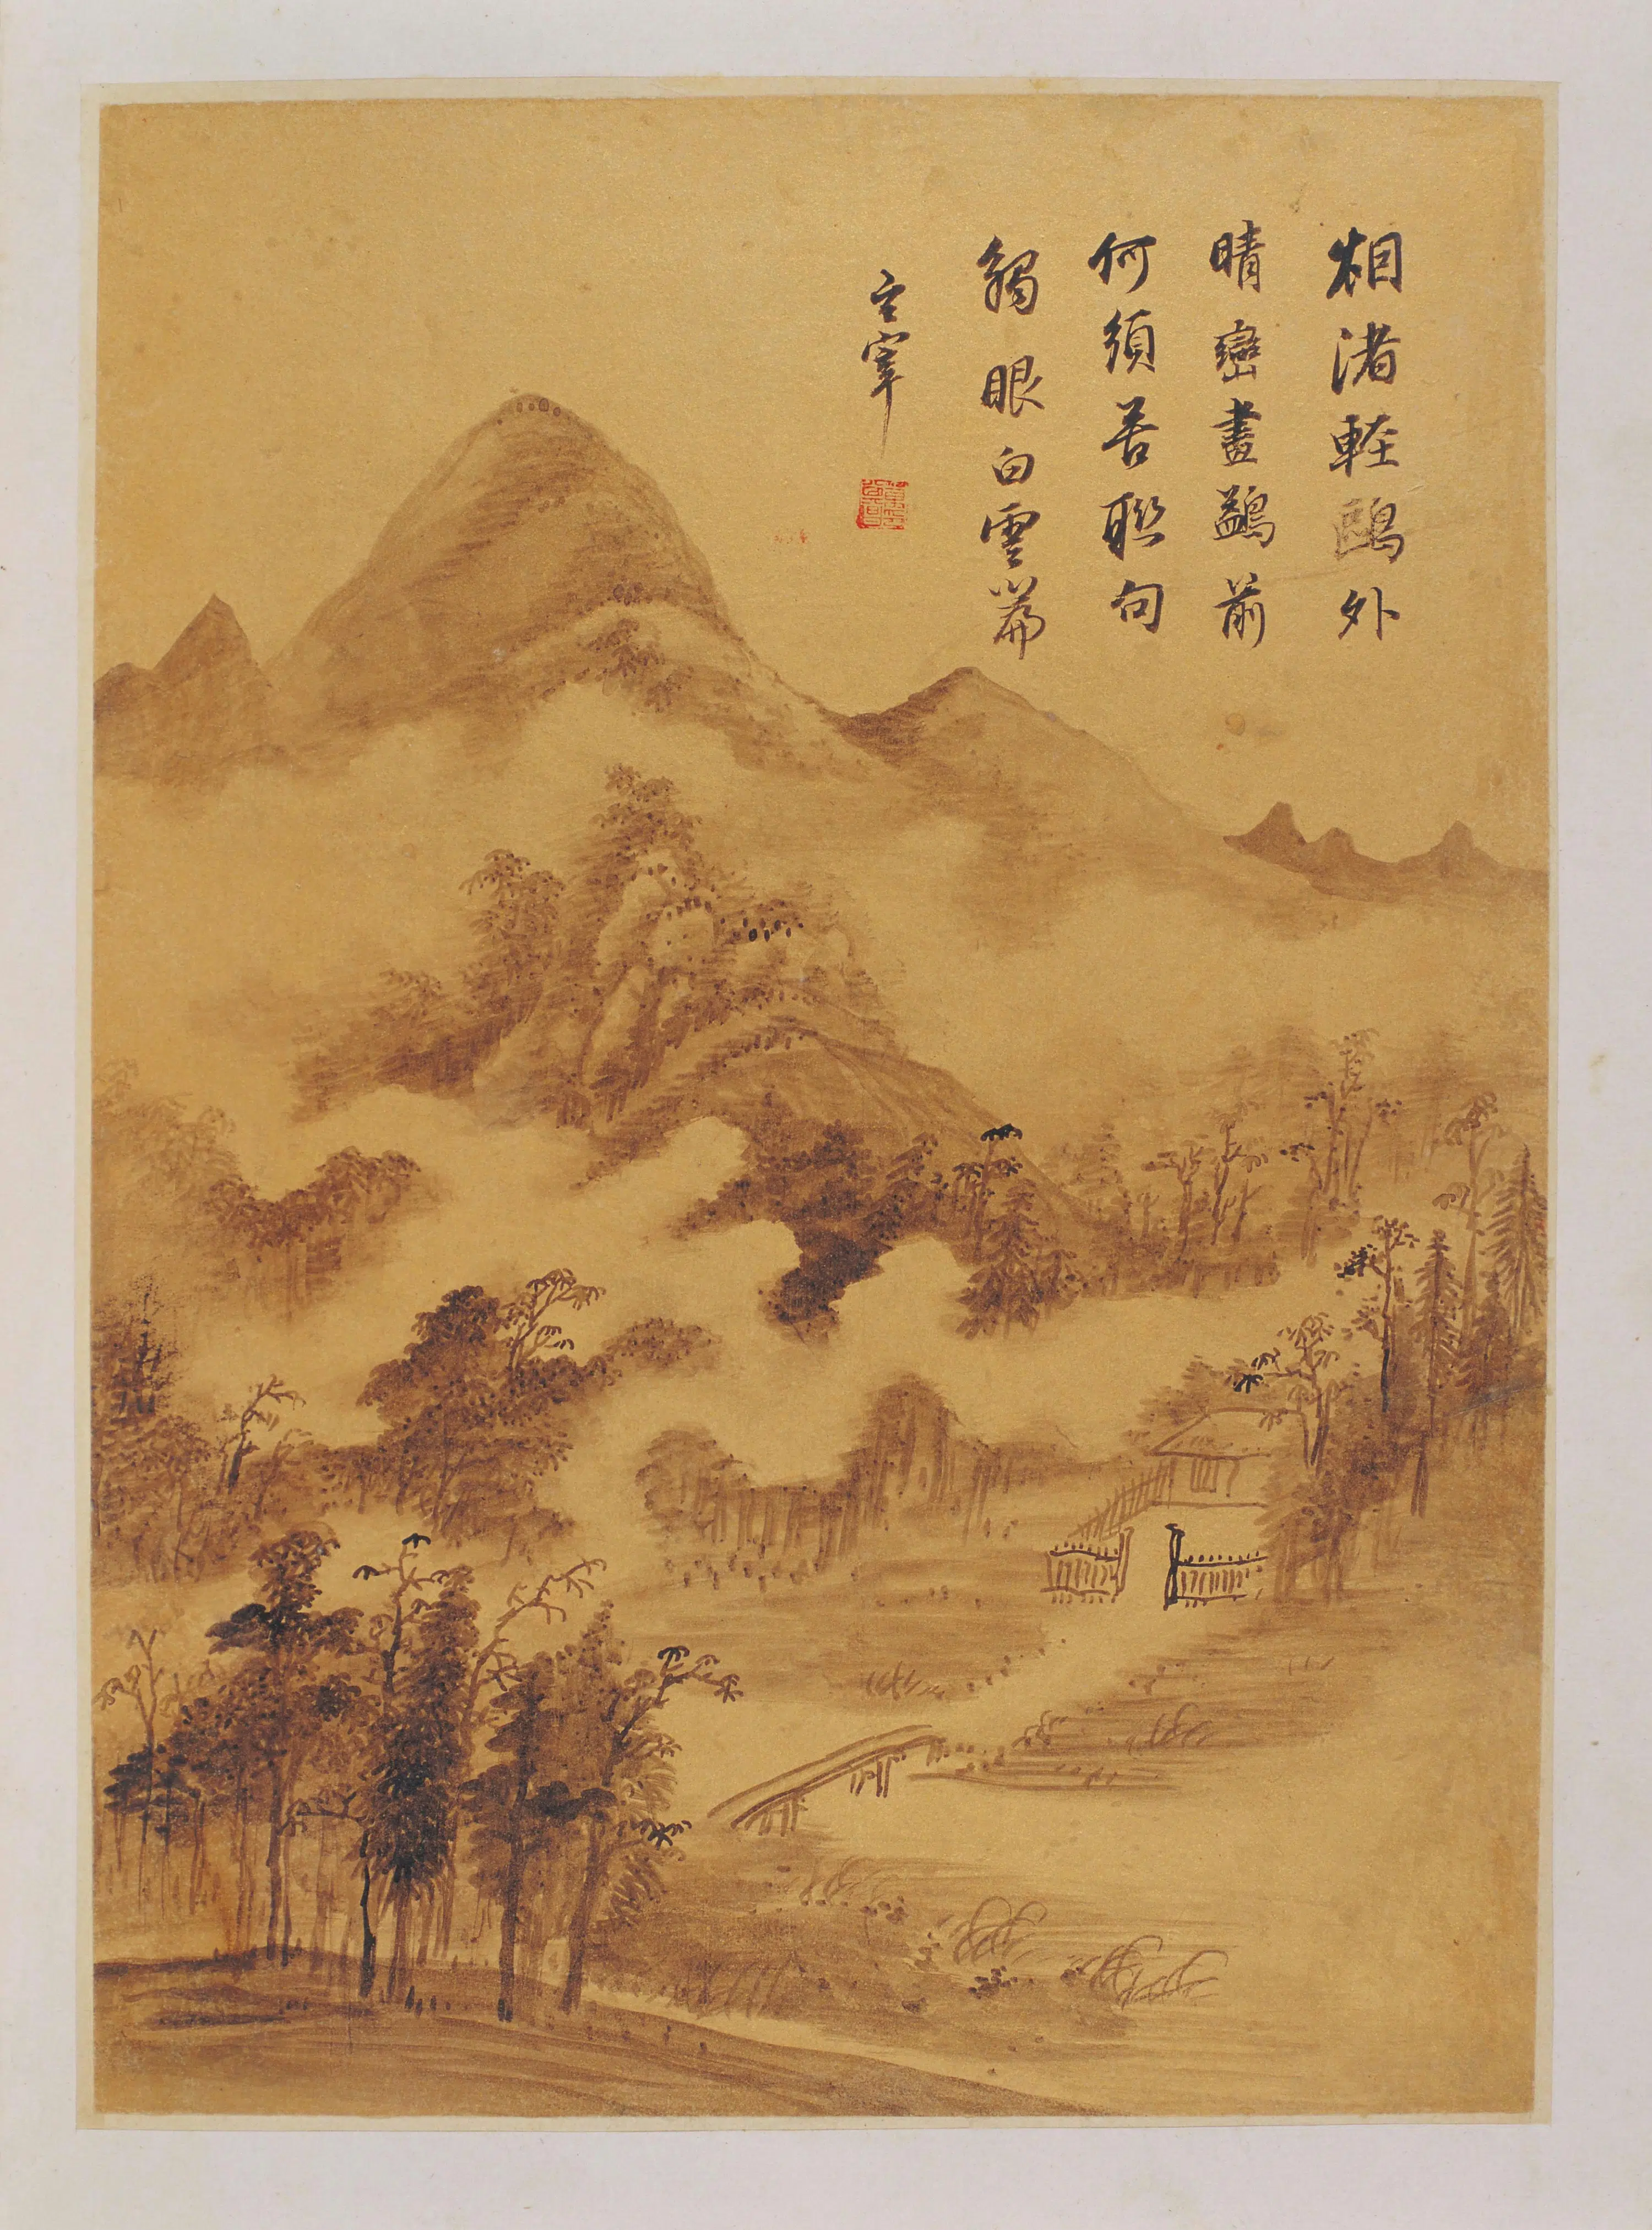 烟渚輕鷗外
晴巒畫鷁前
何須若聮句
觸眼白雲篇
玄宰
董其昌